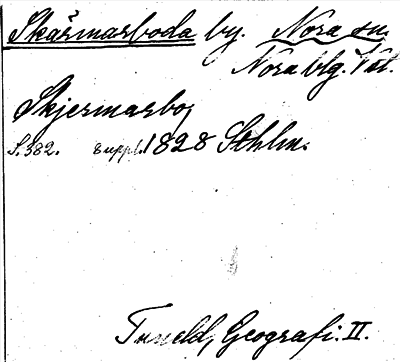 Skärmarboda by. Nora sn.
Nora blg. Vät.
Skjermarbo,
S. 382. suppl. 1828 Sthlm.
Tuneld, Geografi. II.